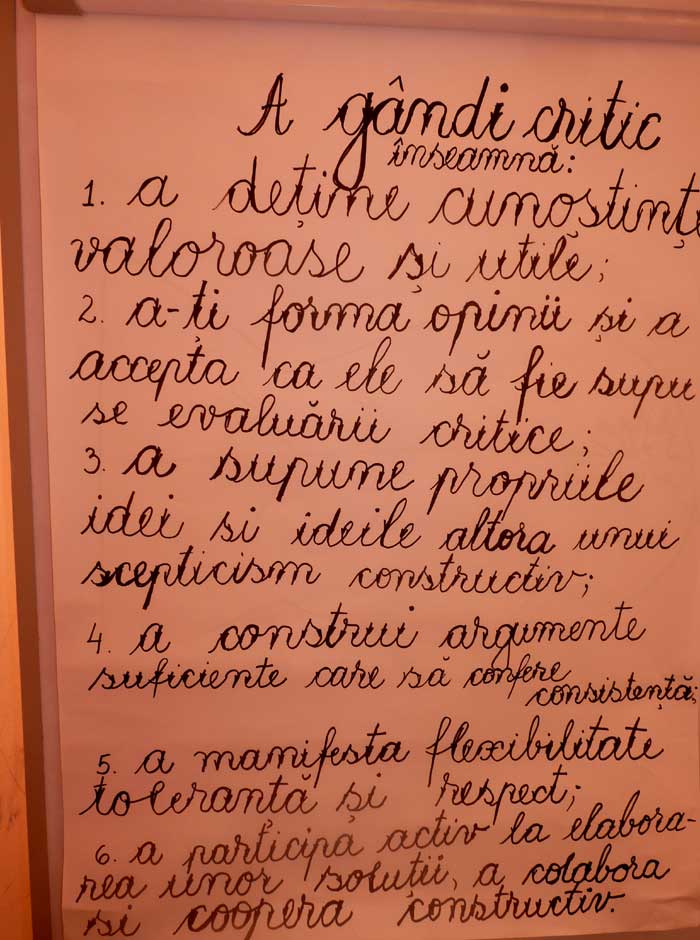 A gândi critic
înseamnă:
1. a deține cunoștințe
valoroase și utile;
2. a-ți forma opinii și a
accepta ca ele să fie supu
se evaluării critice;
3. a supume propriile
idei si ideile altora unui
scepticism constructiv;
4. a construi argumente
suficiente care să confere
consistență;
5. a manifesta flexibilitate
toleranță și respect;
6. a participa activ la elabora-
rea unor soluții, a colabora
si coopera constructiv.